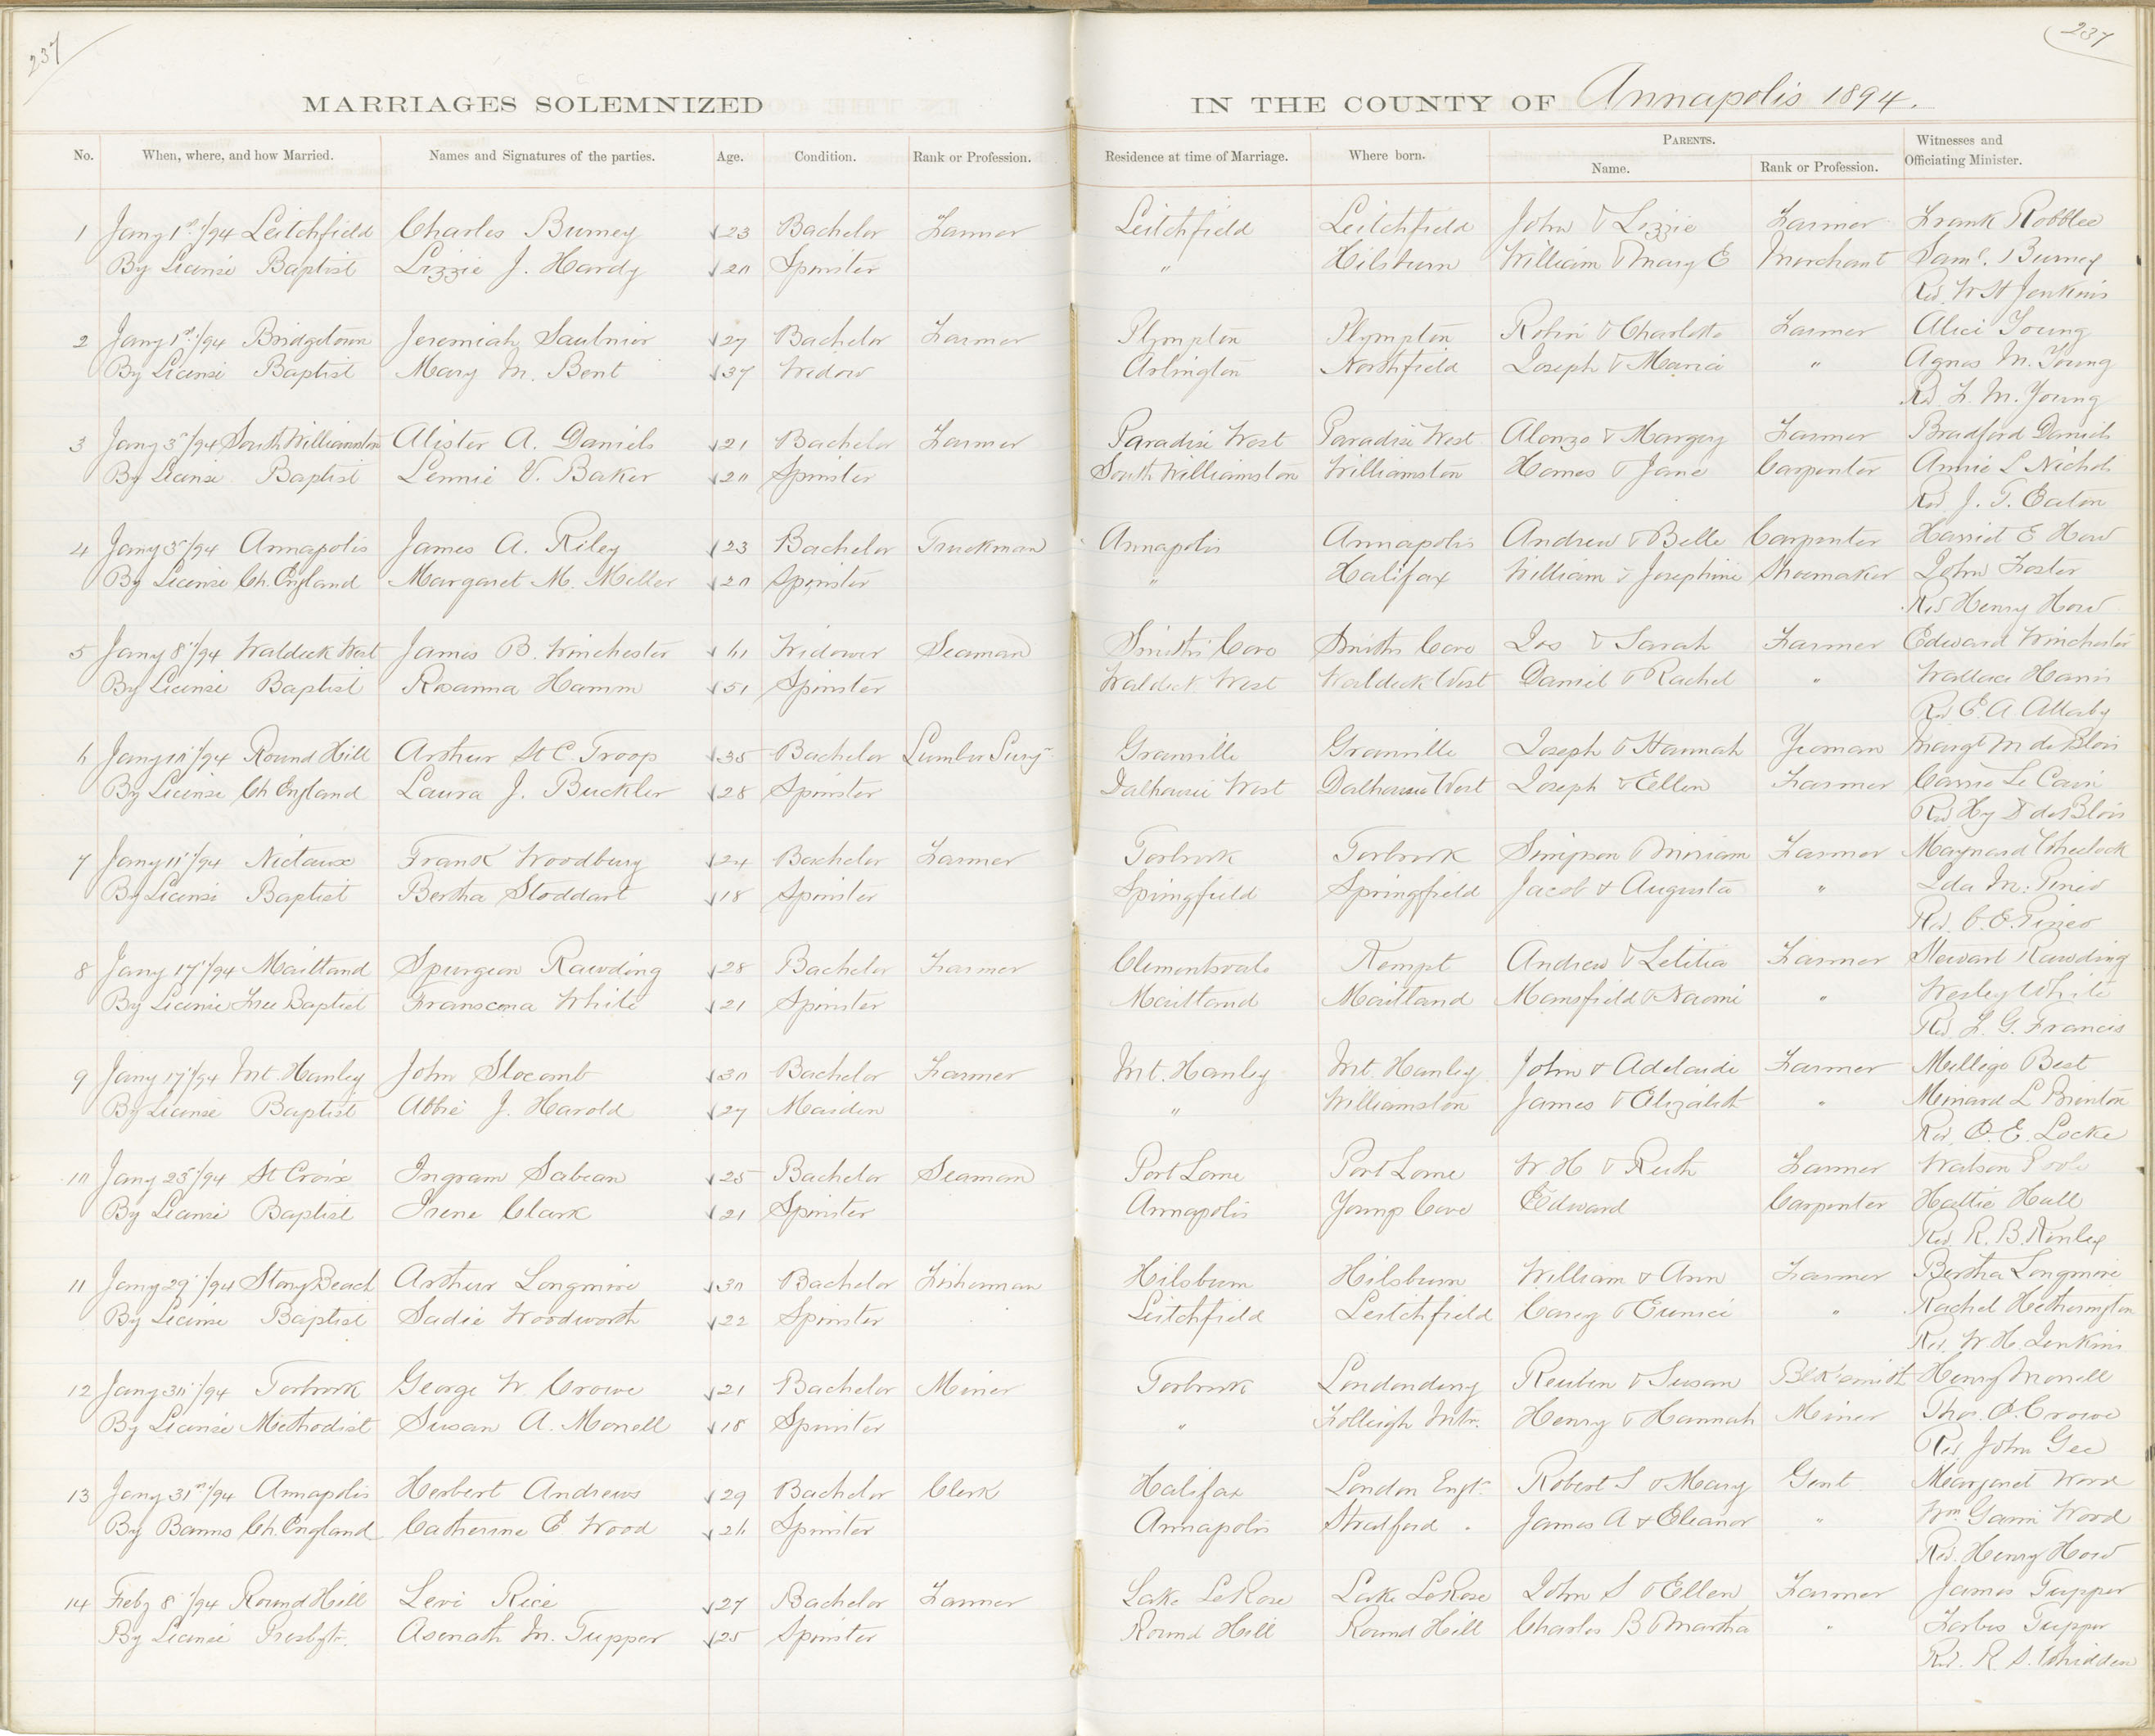 237
237
MARRIAGES SOLEMNIZED IN THE COUNTY OF Annapolis 1894.
No. When, where, and how Married. Names and Signatures of the parties. Age. Condition. Rank or Profession. Residence at time of Marriage. Where born. PARENTS. Name. Rank or Profession. Witnesses and Officiating Minister.
1 Jany 1st/94 Leitchfield Charles Burney 23 Bachelor Farmer Leitchfield Leitchfield John & Lizzie Farmer Frank Robblee
By License Baptist Lizzie J. Hardy 20 Spinster " Hilsburn William & Mary E Merchant Saml. Burney
Rev. W H Jenkins
2 Jany 1st/94 Bridgetown Jeremiah Saulnier 27 Bachelor Farmer Plympton Plympton Robin & Charlotte Farmer Alice Young
By License Baptist Mary M. Bent 37 Widow Arlington Northfield Joseph & Maria " Agnes M. Young
Rev. F. M. Young
3 Jany 3"/94 South Williamston Alister A. Daniels 21 Bachelor Farmer Paradise West Paradise West Alonzo & Margery Farmer Bradford Daniels
By License Baptist Lennie V. Baker 20 Spinster South Williamston Williamston Homes & Jane Carpenter Annie L Nichols
Rev. J. T. Eaton
4 Jany 3"/94 Annapolis James A. Riley 23 Bachelor Truckman Annapolis Annapolis Andrew & Belle Carpenter Harriet E How
By License Ch. England Margaret M. Miller 20 Spinster " Halifax William & Josephine Shoemaker John Foster
Rev Henry How
5 Jany 8"/94 Waldeck West James B. Winchester 61 Widower Seaman Smiths Cove Smiths Cove Jos & Sarah Farmer Edward Winchester
By License Baptist Rosanna Hamm 51 Spinster Waldeck West Waldeck West Daniel & Rachel " Wallace Harris
Rev. E. A Allaby
6 Jany 10"/94 Round Hill Arthur St C. Troop 35 Bachelor Lumber Survr Granville Granville Joseph & Hannah Yeoman Margt M de Blois
By License Ch England Laura J. Buckler 28 Spinster Dalhousie West Dalhousie West Joseph & Ellen Farmer Carrie Le Cain
Rev Hy D de Blois
7 Jany 11"/94 Nictaux Frank Woodbury 24 Bachelor Farmer Torbrook Torbrook Simpson & Miriam Farmer Maynard Wheelock
By License Baptist Bertha Stoddart 18 Spinster Springfield Springfield Jacob & Augusta " Ida M. Pineo
Rev. E. E. Pineo
8 Jany 17"/94 Maitland Spurgeon Rawding 28 Bachelor Farmer Clementsvale Kempt Andrew & Letitia Farmer Stewart Rawding
By License Free Baptist Franscena White 21 Spinster Maitland Maitland Mansfield & Naomi " Wesley White
Rev. F. G. Francis
9 Jany 17"/94 Mt. Hanley John Slocomb 30 Bachelor Farmer Mt. Hanley Mt. Hanley John & Adelaide Farmer Millige Best
By License Baptist Abbie J. Harold 27 Maiden " Williamston James & Elizabeth " Minard L Brinton
Rev. O. E. Locke
10 Jany 25"/94 St Croix Ingram Sabean 25 Bachelor Seaman Port Lorne Port Lorne W H & Ruth Farmer Watson Poole
By License Baptist Irene Clark 21 Spinster Annapolis Youngs Cove Edward Carpenter Hattie Hall
Rev. R. B. Kinley
11 Jany 29"/94 Stony Beach Arthur Longmire 30 Bachelor Fisherman Hilsburn Hilsburn William & Ann Farmer Bertha Longmire
By License Baptist Sadie Woodworth 22 Spinster Leitchfield Leitchfield Carey & Eunice " Rachel Hetherington
Rev. W H. Jenkins
12 Jany 30"/94 Torbrook George W. Crowe 21 Bachelor Miner Torbrook Londonderry Reuben & Susan Blksmith Henry Morrell
By License Methodist Susan A. Morrell 18 Spinster " Folleigh Mtn. Henry & Hannah Miner Thos. O. Crowe
Rev John Gee
13 Jany 31st/94 Annapolis Herbert Andrews 29 Bachelor Clerk Halifax London Engl. Robert S & Mary Gent. Margaret Wood
By Banns Ch. England Catherine E Wood 26 Spinster Annapolis Stratford " James A & Eleanor " Wm Wood
Rev. Henry How
14 Feby 8"/94 Round Hill Levi Rice 27 Bachelor Farmer Lake LeRose Lake LeRose John S & Ellen Farmer James Tupper
By License Presbytr. Asenath M. Tupper 25 Spinster Round Hill Round Hill Charles B & Martha " Forbes Tupper
Rev. R. S. Whidden